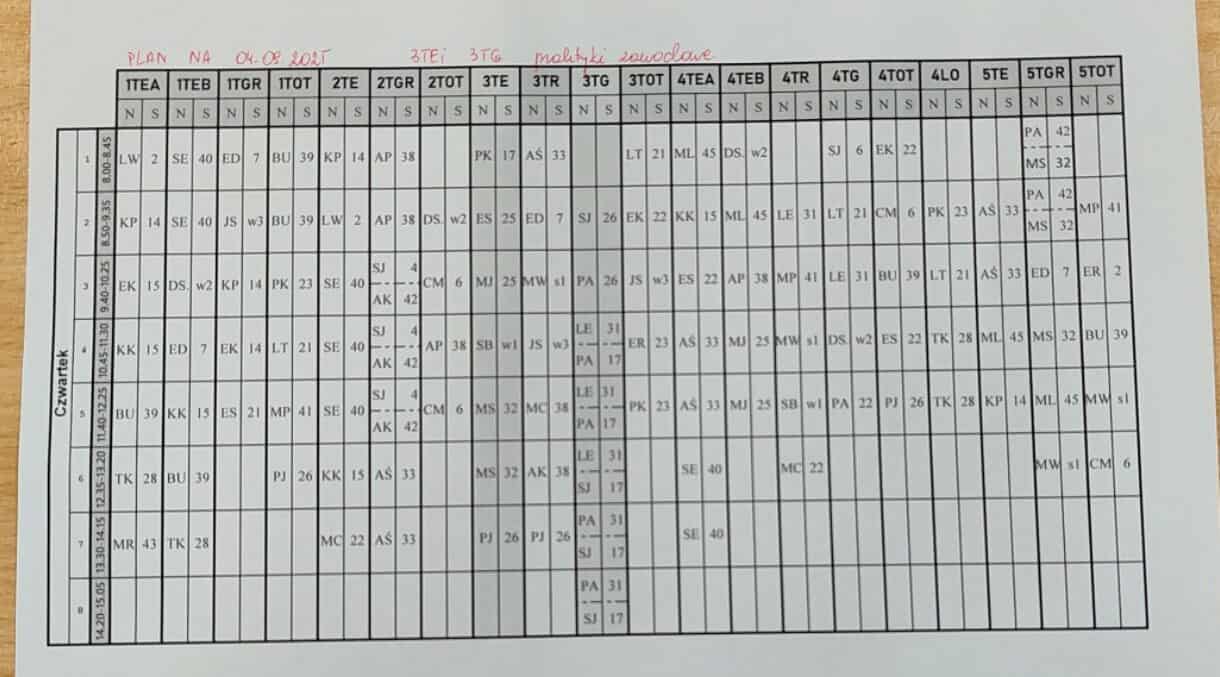 PLAN NA 04.09.2025 3TE i 3TG praktyki zawodowe
1TEA 1TEB 1TGR 1TOT 2TE 2TGR 2TOT 3TE 3TR 3TG 3TOT 4TEA 4TEB 4TR 4TG 4TOT 4LO 5TE 5TGR 5TOT
N S N S N S N S N S N S N S N S N S N S N S N S N S N S N S N S N S N S N S N S
Czwartek
1 8.00-8.45 LW 2 SE 40 ED 7 BU 39 KP 14 AP 38 PK 17 AŚ 33 LT 21 ML 45 DS. w2 SJ 6 EK 22 PA 42
MS 32
2 8.50-9.35 KP 14 SE 40 JS w3 BU 39 LW 2 AP 38 DS. w2 ES 25 ED 7 SJ 26 EK 22 KK 15 ML 45 LE 31 LT 21 CM 6 PK 23 AŚ 33 PA 42 MP 41
MS 32
3 9.40-10.25 EK 15 DS. w2 KP 14 PK 23 SE 40 SJ 4 CM 6 MJ 25 MW s1 PA 26 JS w3 ES 22 AP 38 MP 41 LE 31 BU 39 LT 21 AŚ 33 ED 7 ER 2
AK 42
4 10.45-11.30 KK 15 ED 7 EK 14 LT 21 SE 40 SJ 4 AP 38 SB w1 JS w3 LE 31 ER 23 AŚ 33 MJ 25 MW s1 DS. w2 ES 22 TK 28 ML 45 MS 32 BU 39
AK 42 PA 17
5 11.40-12.25 BU 39 KK 15 ES 21 MP 41 SE 40 SJ 4 CM 6 MS 32 MC 38 LE 31 PK 23 AŚ 33 MJ 25 SB w1 PA 22 PJ 26 TK 28 KP 14 ML 45 MW s1
AK 42 PA 17
6 12.35-13.20 TK 28 BU 39 PJ 26 KK 15 AŚ 33 MS 32 AK 38 LE 31 SE 40 MC 22 MW s1 CM 6
SJ 17
7 13.30-14.15 MR 43 TK 28 MC 22 AŚ 33 PJ 26 PJ 26 PA 31 SE 40
SJ 17
8 14.20-15.05 PA 31
SJ 17